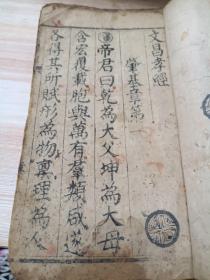 文昌孝經
肇基章第一
帝君曰乾為大父坤為大母
含宏覆載胞與萬有羣類咸遂
各得其所賦形為物禀理為人